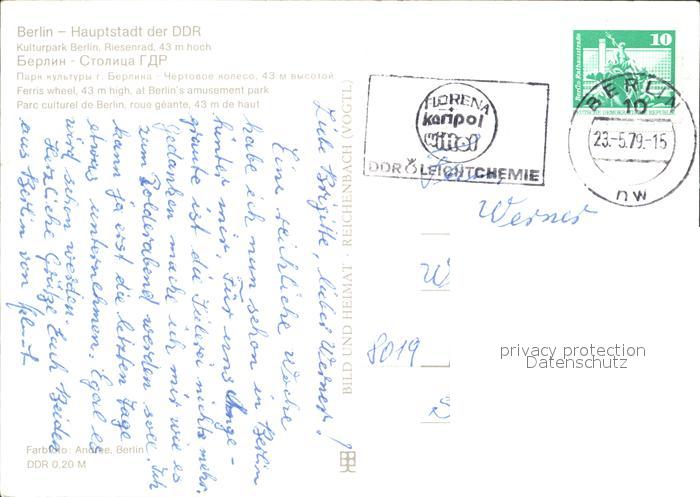 Berlin – Hauptstadt der DDR
Kulturpark Berlin, Riesenrad, 43 m hoch
Берлин - Столица ГДР
Парк культуры г. Берлина - Чертовое колесо, 43 м высотой
Ferris wheel, 43 m high, at Berlin's amusement park
Parc culturel de Berlin, roue géante, 43 m de haut
Liebe Brigitte, lieber Werner!
Eine reichliche Woche
habe ich nun schon in Berlin
hinter mir. Für uns Ange-
graute ist die Feierei nichts mehr.
Gedanken mache ich mir wie es
zum Polderabend werden soll. Ich
kann ja erst die letzten Tage
etwas unternehmen. Egal es
wird schon werden.
Herzliche Grüße Euch Beiden
aus Berlin von
Farbfoto: Andree, Berlin
DDR 0,20 M
BILD UND HEIMAT · REICHENBACH (VOGTL)
FLORENA
karipol
wittol
DDR LEICHTCHEMIE
BERLIN
10
23.-5.79.-15
nw
10
Berlin, Rathausstraße
DEUTSCHE DEMOKRATISCHE REPUBLIK
Werner
W
8019
privacy protection
Datenschutz